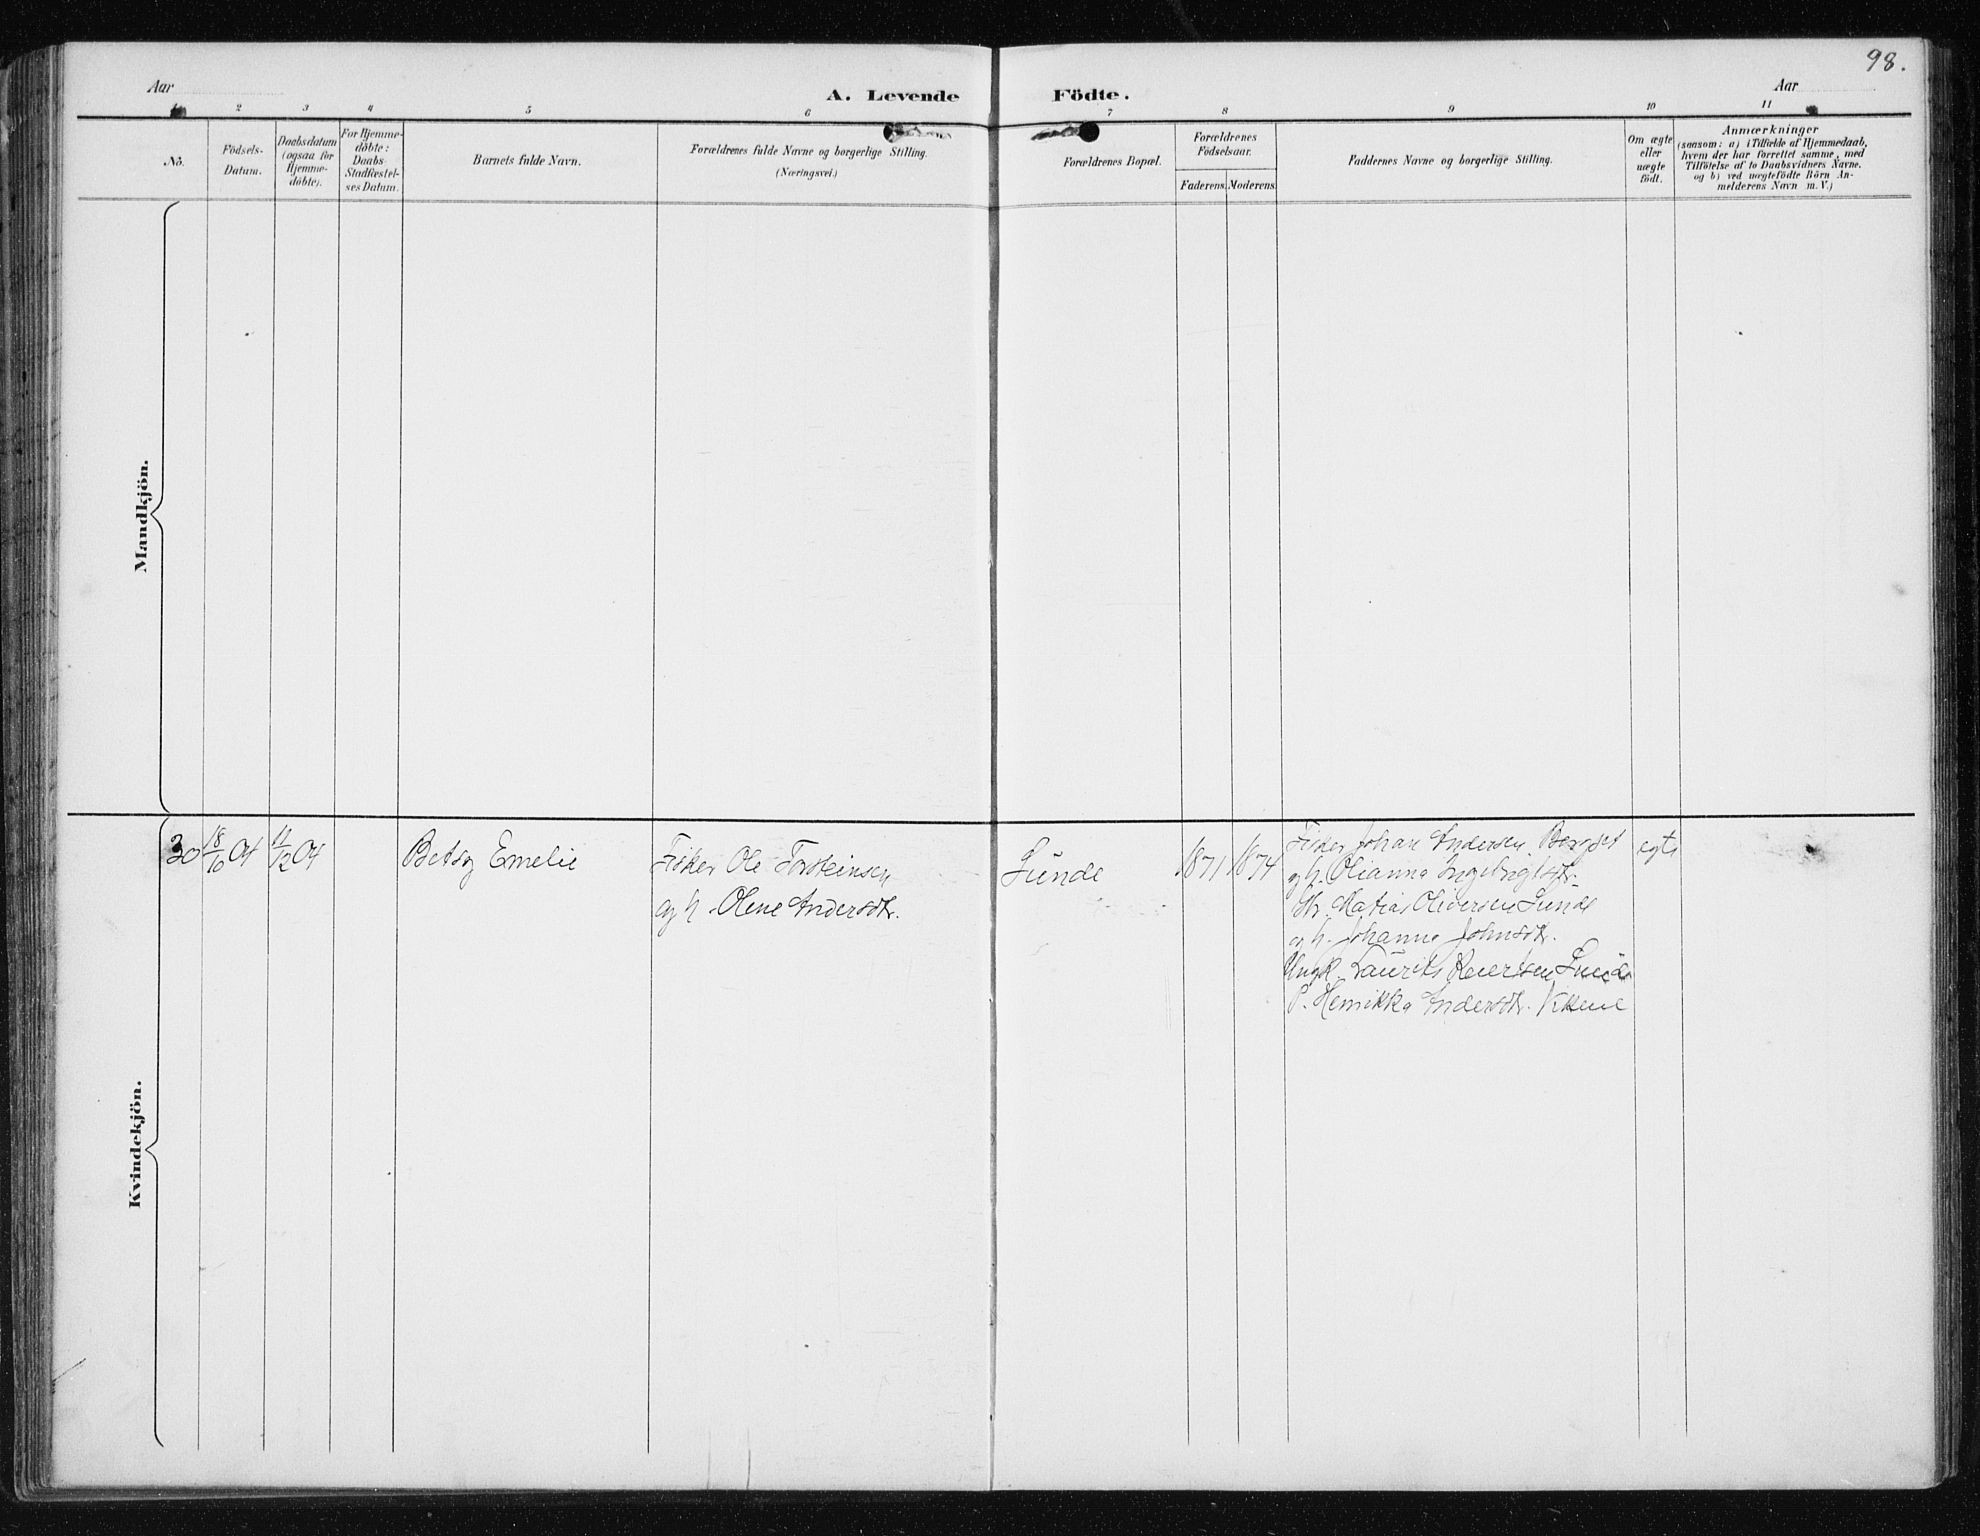 98.
Aar
A. Levende Födte.
Aar
1 2 3 4 5 6 7 8 9 10 11
No.
Födsels-
Datum.
Daabsdatum
(ogsaa for
Hjemme-
döbte).
For Hjemme-
döbte:
Daabs-
Stadfæstel-
ses Datum.
Barnets fulde Navn.
Forældrenes fulde Navne og borgerlige Stilling.
(Næringsvei.)
Forældrenes Bopæl.
Forældrenes
Födselsaar.
Faderens. Moderens.
Faddernes Navne og borgerlige Stilling.
Om ægte
eller
uægte
födt.
Anmærkninger
(saasom: a) i Tilfælde af Hjemmedaab,
hvem der har forrettet samme, med
Tilföielse af to Daabsvidners Navne.
og b) ved uægtefödte Börn An-
melderens Navn m. V.)
Mandkjön.
Kvindekjön.
30 18/10 04 11/12 04 Betsy Emelie
Fisker Ole Torsteinsen
og h. Olene Andersdtr.
Lunde
1871 1874
Fisker Johan Andersen Berget
og h. Olianna Ingebrigtsdtr.
Matias Oliversen Lunde
og h. Johanna Johnsdtr.
Ungk. Laurits Reiersen Lunde
P. Henrikka Andersdtr. Vikene
egte